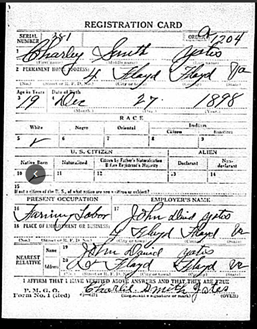 REGISTRATION CARD
SERIAL NUMBER 281 ORDER NUMBER 1204
1 Charley Smith Yates
2 PERMANENT HOME ADDRESS:
4 Floyd Floyd Va
Age in Years Date of Birth
19 Dec 27 1898
RACE
White Negro Oriental Indian
Citizen
5 6 7 8 9
U. S. CITIZEN ALIEN
Native Born Naturalized Citizen by Father's Naturalization Declarant Non-declarant
10 11 12 13 14
15
If not a citizen of the U. S., of what nation are you a citizen or subject?
PRESENT OCCUPATION EMPLOYER'S NAME
16 Farming Labor 17 John Yates
18 PLACE OF EMPLOYMENT OR BUSINESS:
4 Floyd Floyd Va
NEAREST RELATIVE
19 John David Yates
20 4 Floyd Floyd Va
I AFFIRM THAT I HAVE VERIFIED ABOVE ANSWERS AND THAT THEY ARE TRUE
P. M. G. O.
Form No. 1 (Red) Charlie Smith Yates